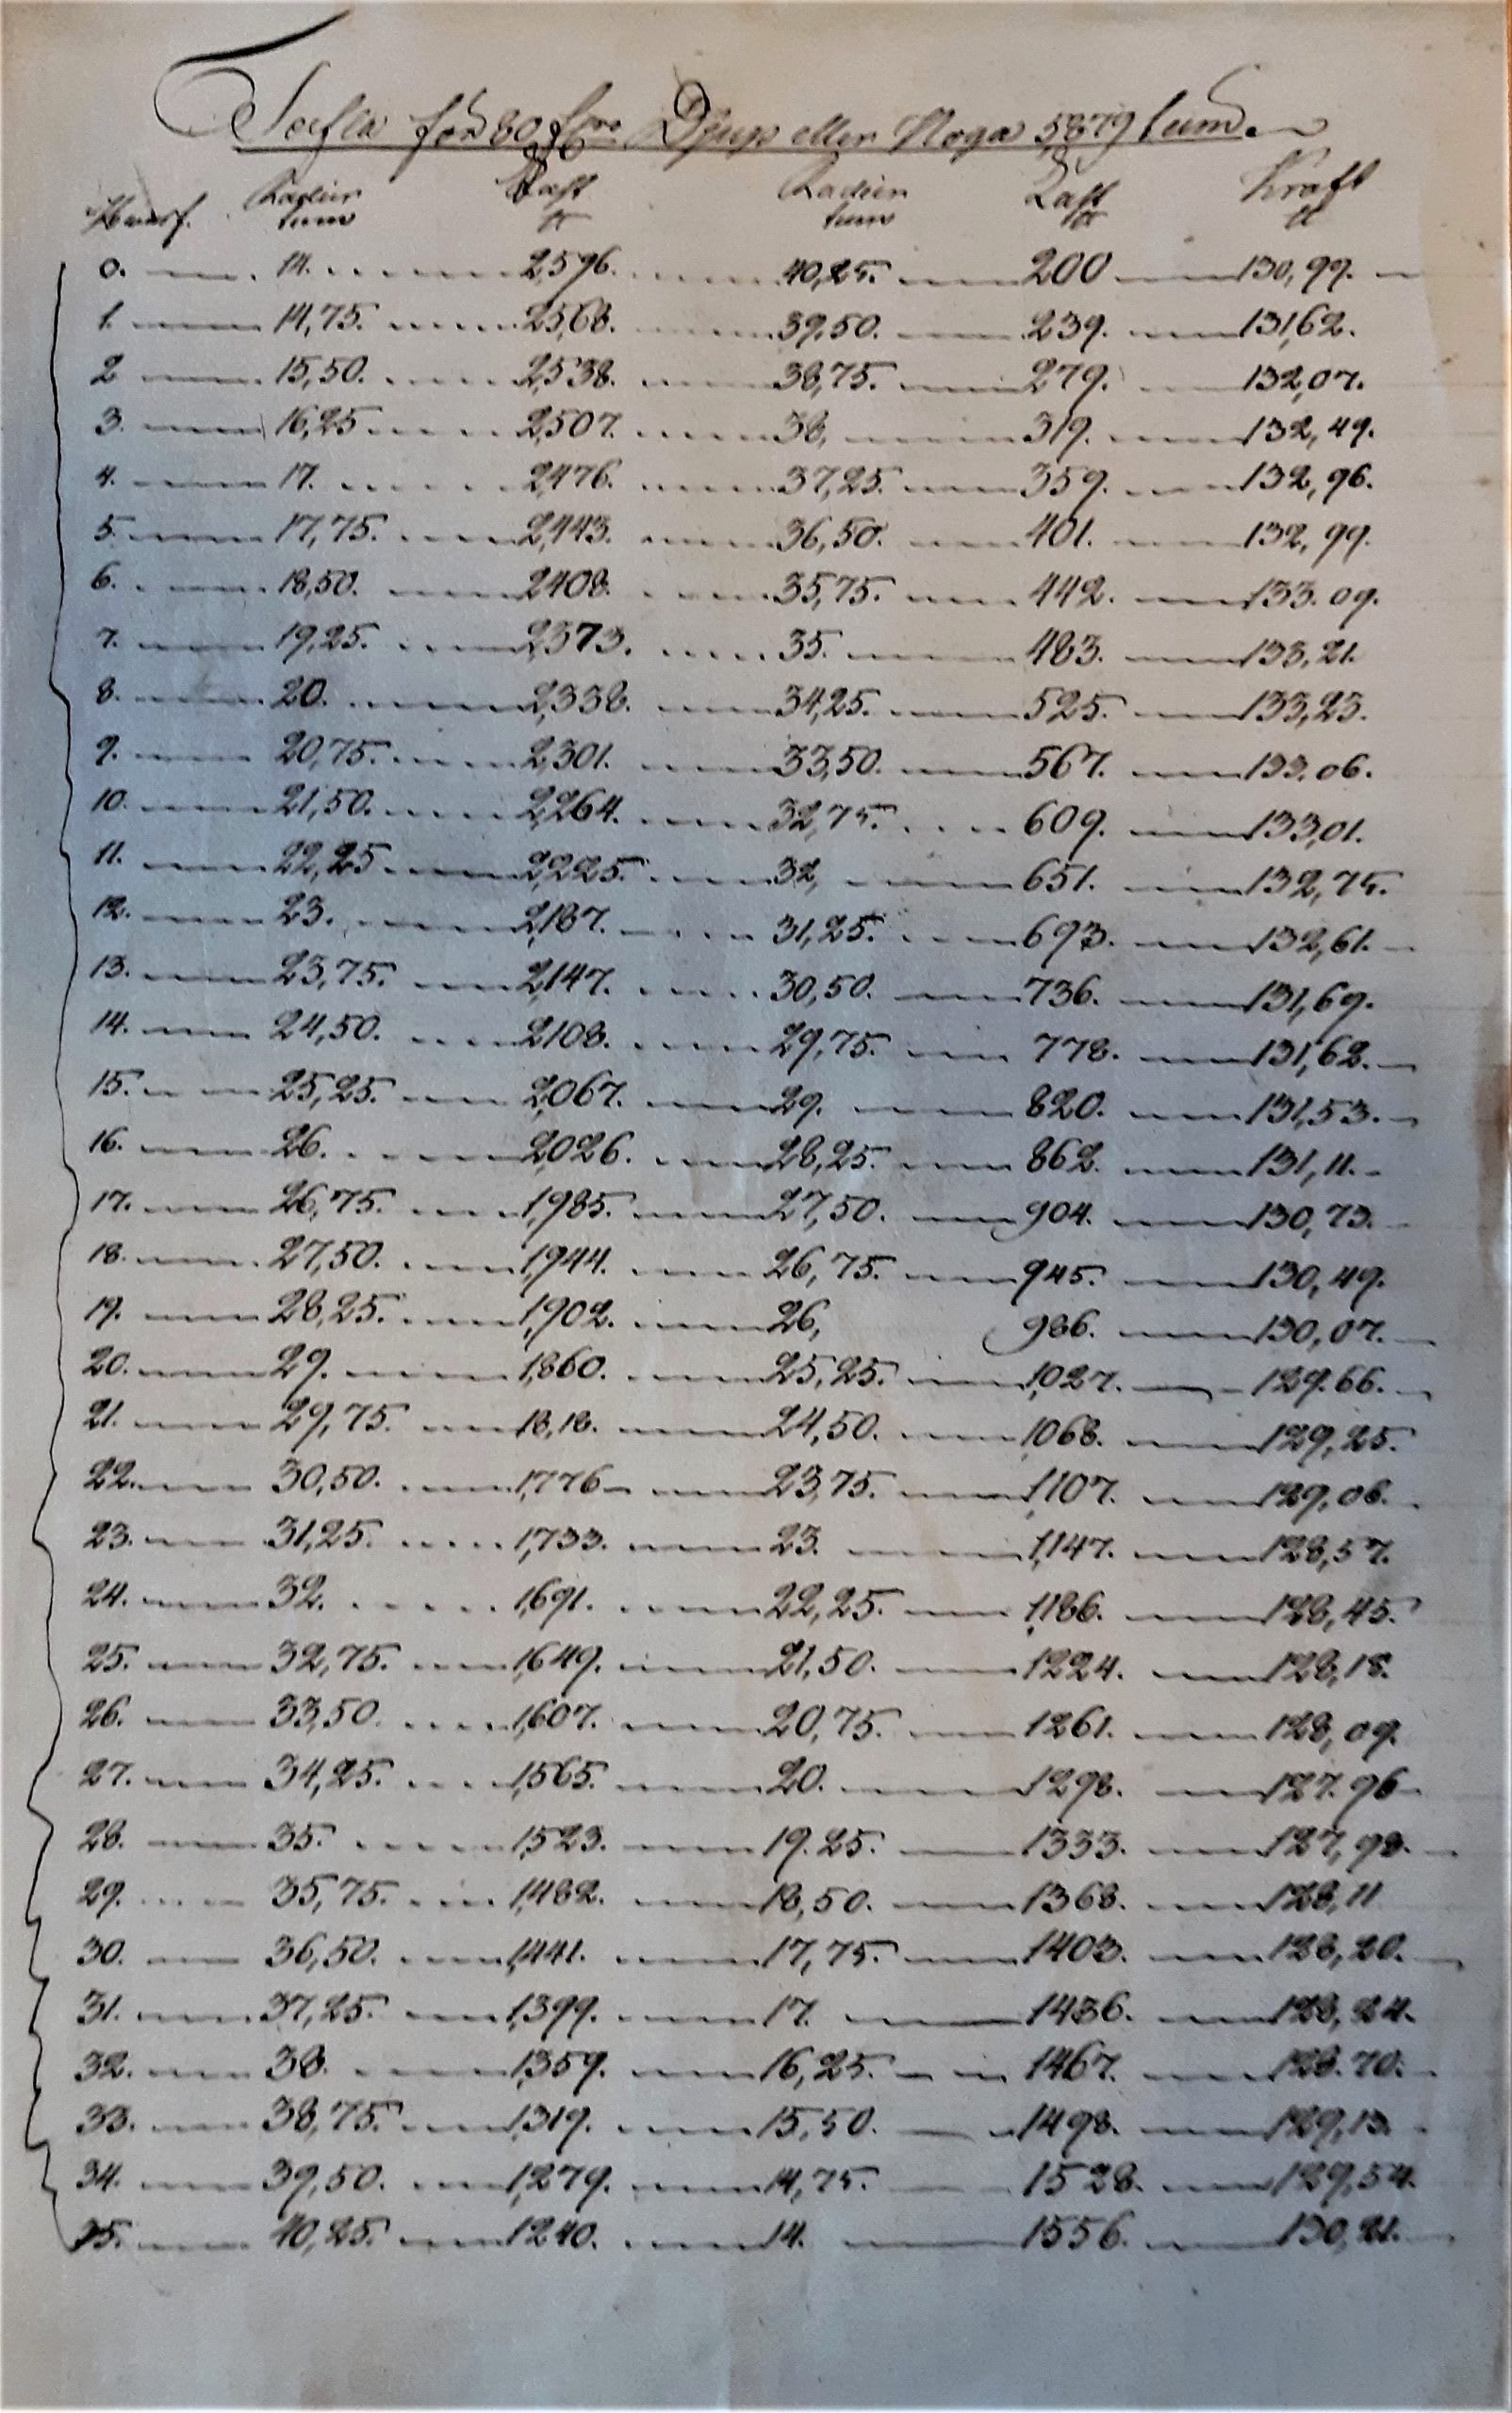 Tafla för 80 fmr Djups eller Noga 5,879 tum.
Hvarf. Radier Last Radier Last Kraft
tum ℔ tum ℔ ℔
0. 14. 2,596. 40,25. 200 130,99.
1. 14,75. 2,568. 39,50. 239. 131,62.
2 15,50. 2,538. 38,75. 279. 132,07.
3. 16,25 2,507. 38, 319. 132,49.
4. 17. 2,476. 37,25. 359. 132,96.
5. 17,75. 2,443. 36,50. 401. 132,99.
6. 18,50. 2408. 35,75. 442. 133.09.
7. 19,25. 2,373. 35. 483. 133,21.
8. 20. 2,338. 34,25. 525. 133,23.
9. 20,75. 2,301. 33,50. 567. 133,06.
10. 21,50. 2,264. 32,75. 609. 133,01.
11. 22,25 2,225. 32, 651. 132,75.
12. 23. 2,187. 31,25. 693. 132,61.
13. 23,75. 2,147. 30,50. 736. 131,69.
14. 24,50. 2108. 29,75. 778. 131,62.
15. 25,25. 2,067. 29. 820. 131,53.
16. 26. 2,026. 28,25. 862. 131,11.
17. 26,75. 1,985. 27,50. 904. 130,73.
18. 27,50. 1,944. 26,75. 945. 130,49.
19. 28,25. 1,902. 26, 986. 130,07.
20. 29. 1,860. 25,25. 1,027. 129.66.
21. 29,75. 18,18. 24,50. 1,068. 129,25.
22. 30,50. 1,776 23,75. 1,107. 129,06.
23. 31,25. 1,733. 23. 1,147. 128,57.
24. 32. 1,691. 22,25. 1,186. 128,45.
25. 32,75. 1,649. 21,50. 1224. 128,18.
26. 33,50. 1,607. 20,75. 1261. 128,09.
27. 34,25. 1,565. 20. 1298. 127.96
28. 35. 1,523. 19.25. 1333. 127,98.
29. 35,75. 1,482. 18,50. 1368. 128,11
30. 36,50. 1,441. 17,75. 1403. 128,20.
31. 37,25. 1,399. 17. 1436. 128,24.
32. 38. 1,359. 16,25. 1467. 128.70.
33. 38,75. 1,319. 15,50. 1498. 129,13.
34. 39,50. 1,279. 14,75. 1528. 129,54.
35. 40,25. 1240. 14. 1556. 130,21.